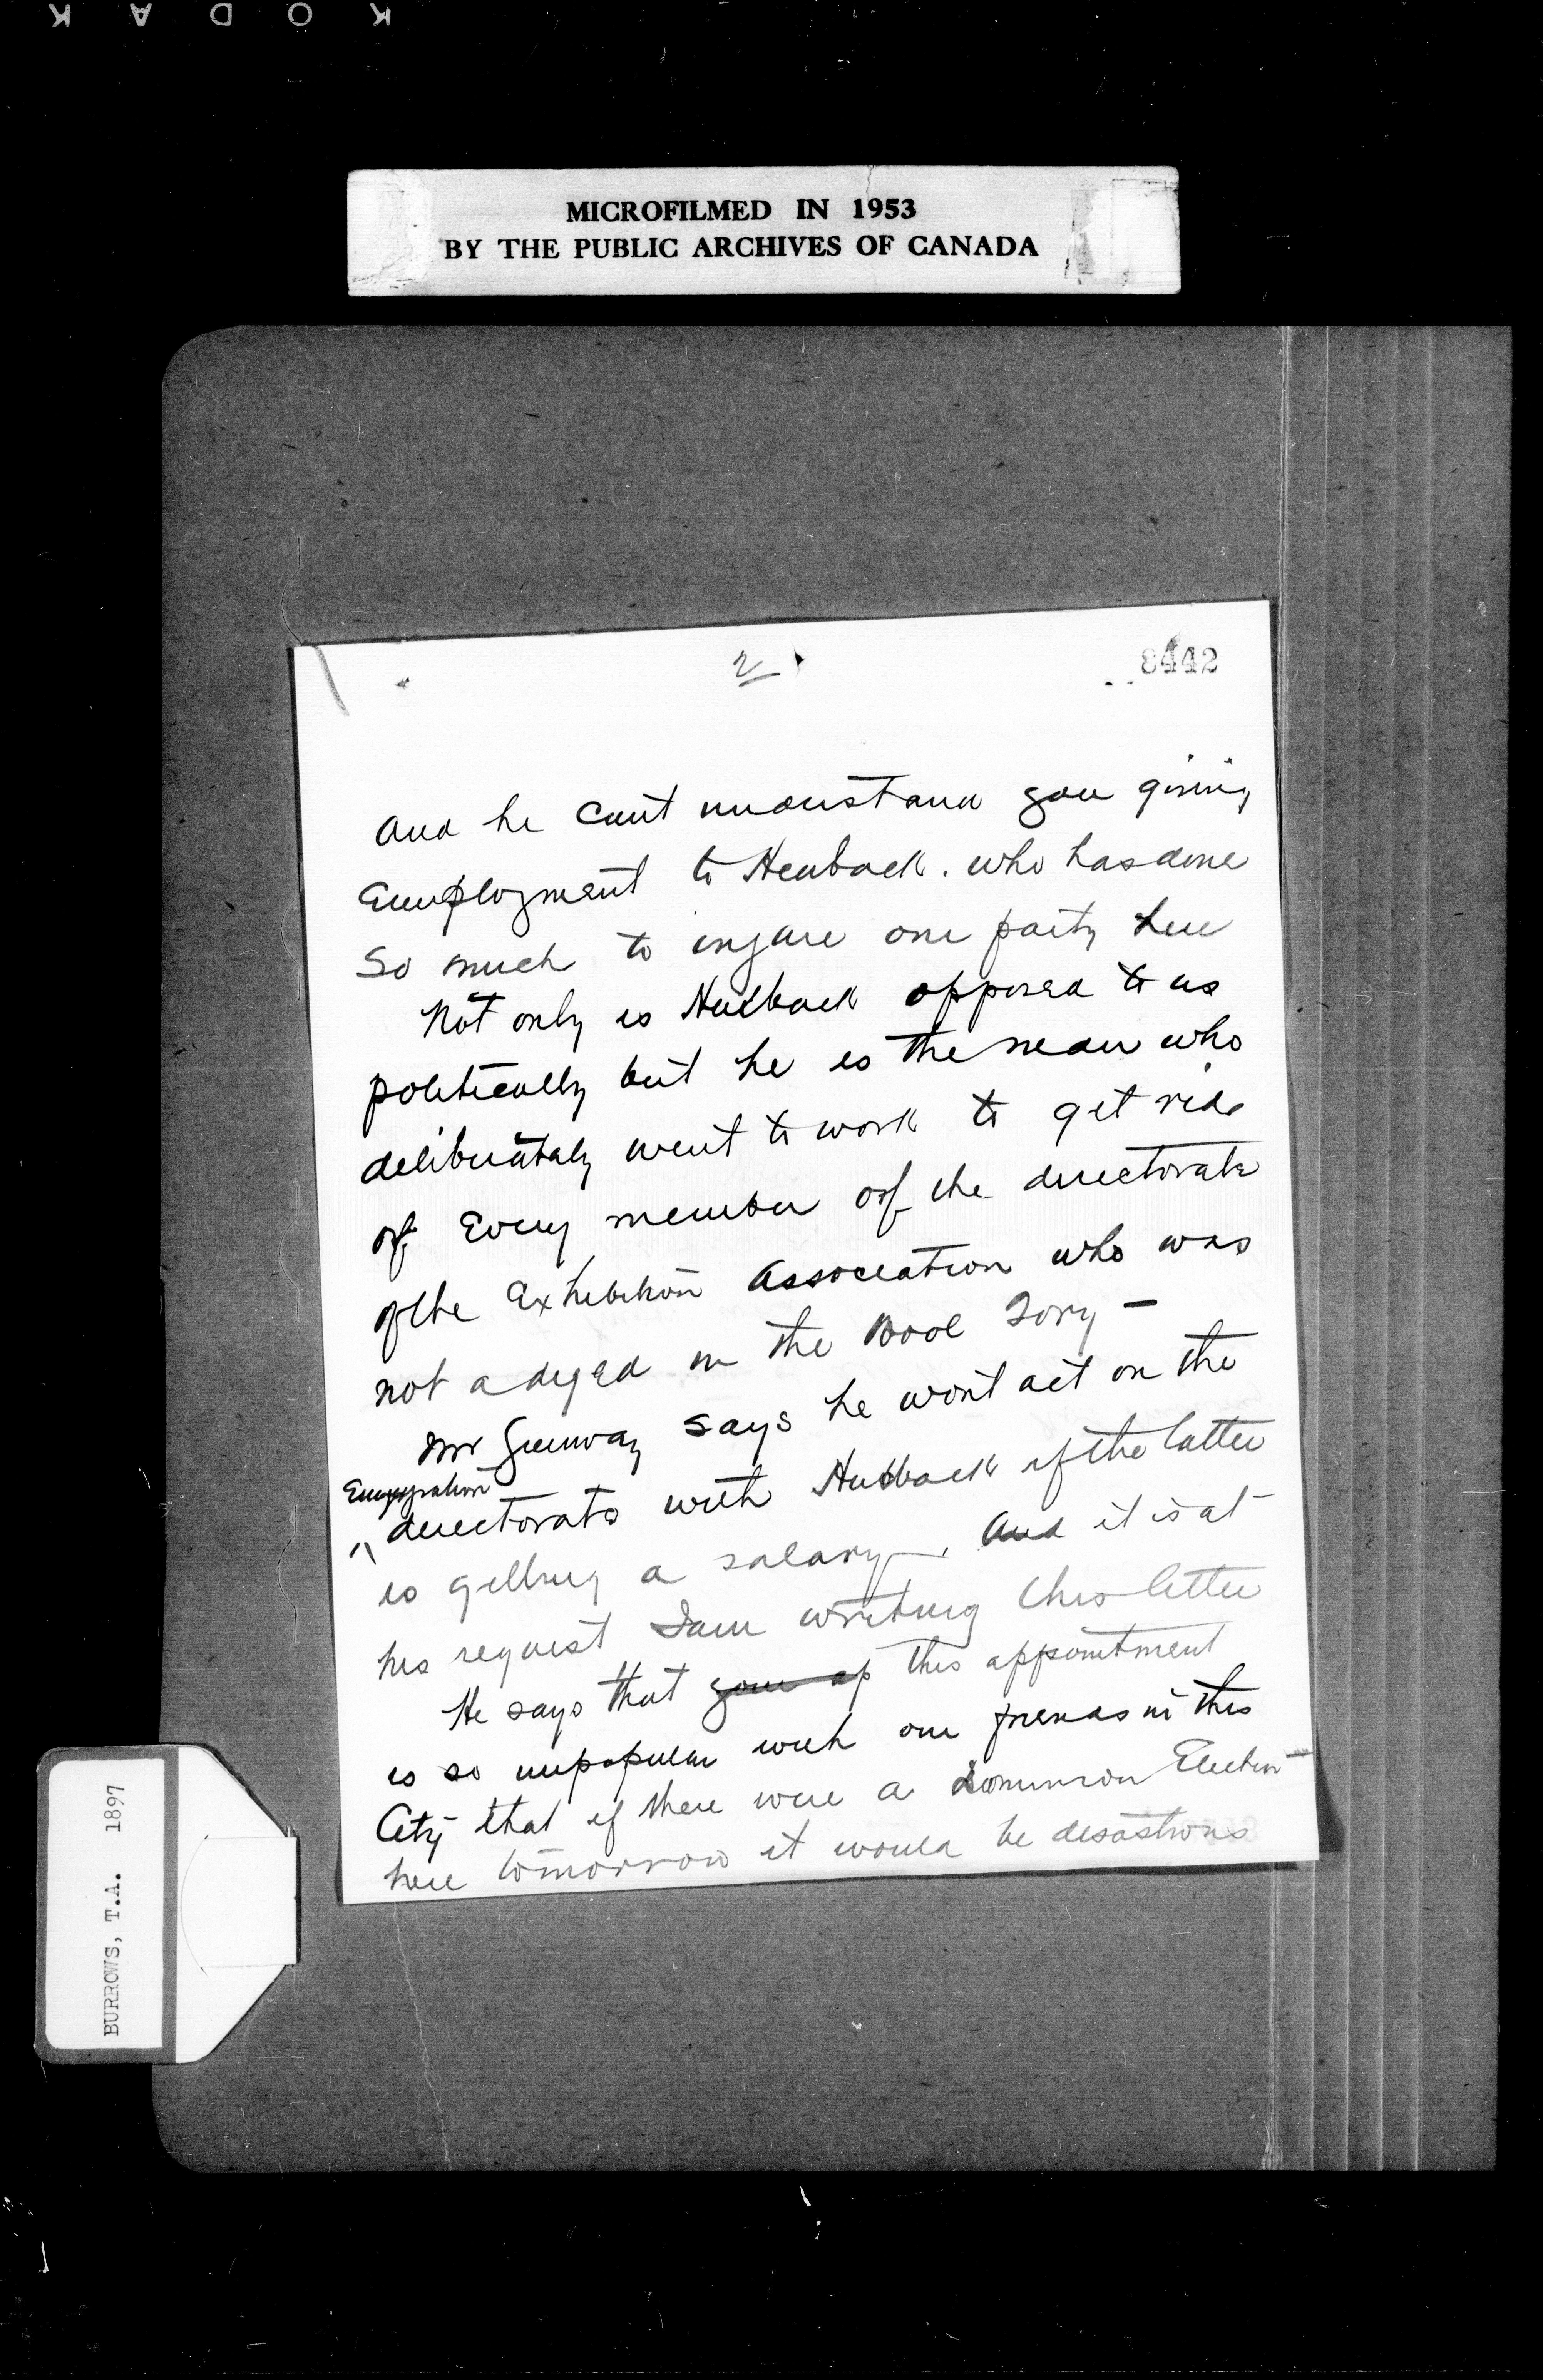 KODAK
MICROFILMED IN 1953
BY THE PUBLIC ARCHIVES OF CANADA
2
8442
And he cant understand you giving
Employment to Heubach. who has done
So much to injure our party here
Not only is Heubach opposed to us
politically but he is the man who
deliberately went to work to get rid
of Every member of the directorate
of the Exhibition Association who was
not a dyed in the Wool Tory —
Mr Greenway says he wont act on the
Emigration
directorate with Heubach if the latter
is getting a salary. And it is at
his request I am writing this letter
He says that your ap this appointment
is so unpopular with our friends in this
City that if there were a dominion Election
here tomorrow it would be desastrous
BURROWS, T.A. 1897